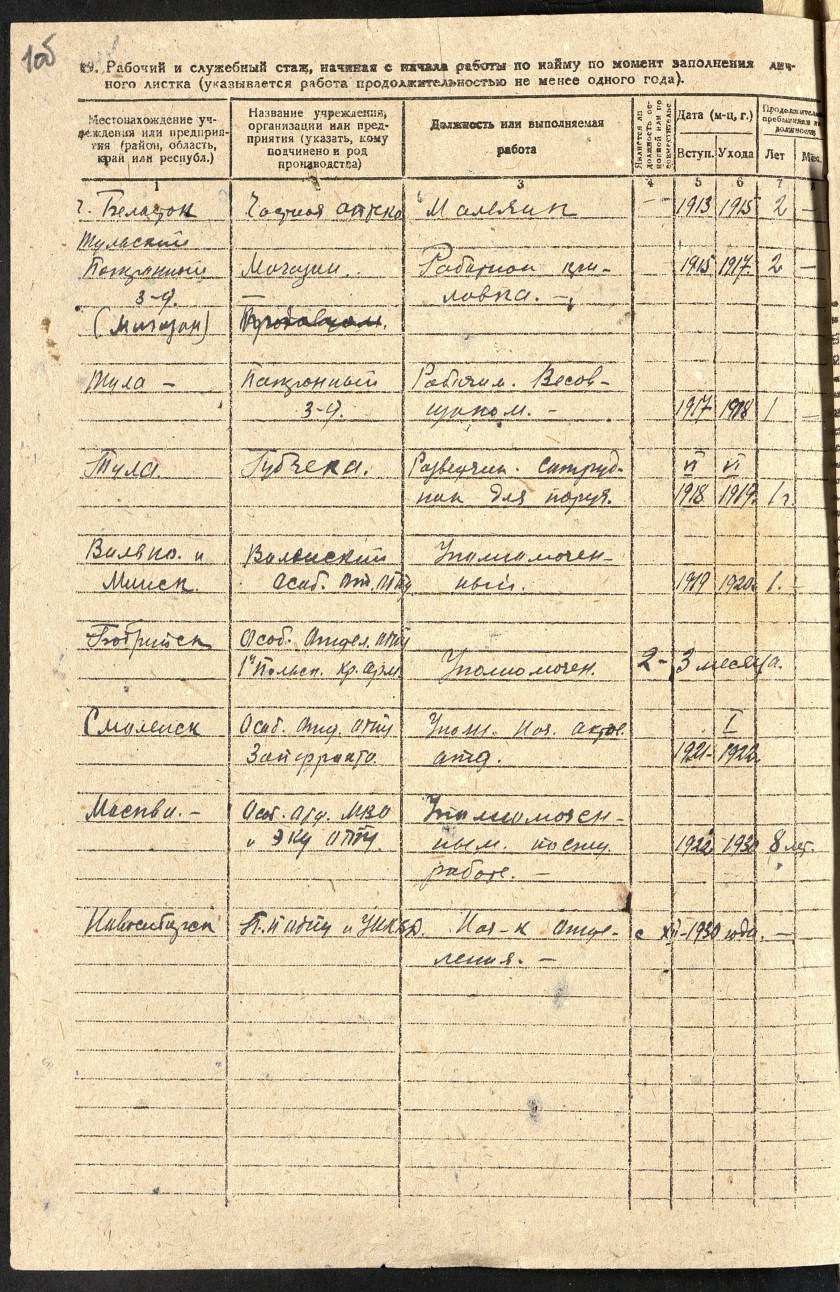 10б
19. Рабочий и служебный стаж, начиная с начала работы по найму по момент заполнения лич-
ного листка (указывается работа продолжительностью не менее одного года).
Местонахождение уч-
реждения или предприя-
тия (район, область,
край или республ.)
Название учреждения,
организации или пред-
приятия (указать, кому
подчинено и род
производства)
Должность или выполняемая
работа
Является ли
должность ос-
новной или по
совместительс
Дата (м-ц, г.)
Вступ. Ухода
Продолжител
пребывания в
должности
Лет Мес.
1 3 4 5 6 7
г. Белосток Частная 1913 1915 2 —
Тульский
Патронный Магазин. Рабочим 1915 1917 2 —
з-д.
(Магазин)
Тула — Патронный Рабочим. Весов-
з-д. щиком. — 1917 1918 1 —
Тула. Губчека. Разведчик. Сотруд- VI VI
ник для поруч. 1918 1919. 1 г.
Вильно и Виленский Уполномочен-
Минск. Особ. От. ОГПУ ный. 1919 1920 1.
Бобруйск Особ. Отдел. ОГПУ
Польск. кр. арм. Уполномочен. 2-3 месяца.
Смоленск Особ. Отд. ОГПУ Уполн. Нач. I
Запфронта. отд. 1921- 1922
Москва. — Особ. Отд. МВО Уполномочен-
и ЭКУ ОГПУ. ным. 1922 1930 8 лет.
работе. —
Новосибирск П.П ОГПУ и УНКВД. Нач-к Отде- с XII-1930 года. —
ления. —